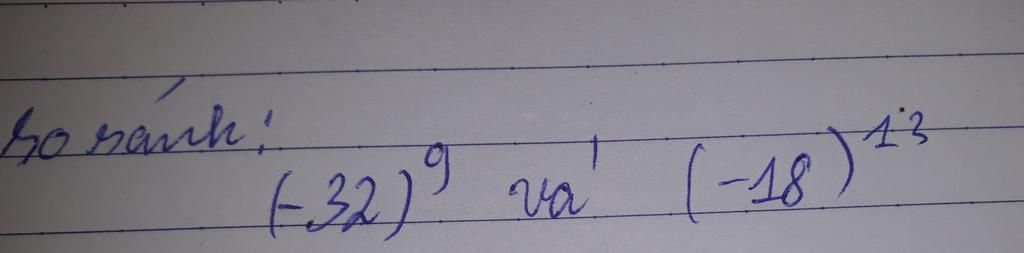 so sánh:
(-32)^9 và (-18)^13